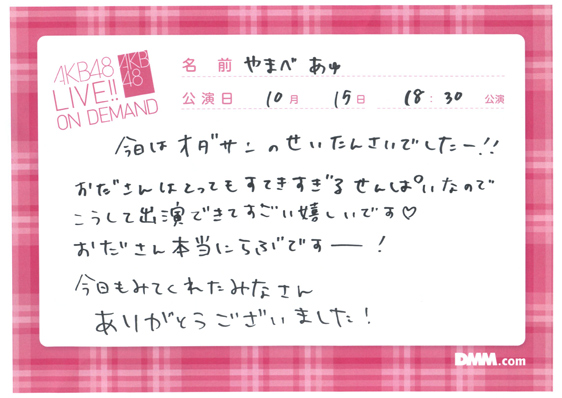 AKB48
LIVE!!
ON DEMAND
AKB
48
名前 やまべ あゆ
公演日 10月 15日 18:30 公演
今日はオダサンのせいたんさいでしたー!!
おださんはとってもすてきすぎるせんぱいなので
こうして出演できてすごい嬉しいです♡
おださん本当にらぶですー!
今日もみてくれたみなさん
ありがとうございました!
DMM.com